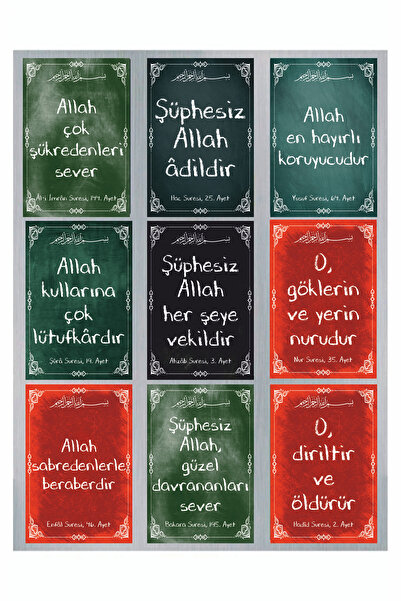 بسم الله الرحمن الرحيم
Allah
çok
şükredenleri
sever
Âl-i İmrân Suresi, 144. Ayet
بسم الله الرحمن الرحيم
Şüphesiz
Allah
âdildir
Hac Suresi, 25. Ayet
بسم الله الرحمن الرحيم
Allah
en hayırlı
koruyucudur
Yusuf Suresi, 64. Ayet
بسم الله الرحمن الرحيم
Allah
kullarına
çok
lütufkârdır
Şûrâ Suresi, 19. Ayet
بسم الله الرحمن الرحيم
Şüphesiz
Allah
her şeye
vekildir
Ahzâb Suresi, 3. Ayet
بسم الله الرحمن الرحيم
O,
göklerin
ve yerin
nurudur
Nur Suresi, 35. Ayet
بسم الله الرحمن الرحيم
Allah
sabredenlerle
beraberdir
Enfâl Suresi, 46. Ayet
بسم الله الرحمن الرحيم
Şüphesiz
Allah,
güzel
davrananları
sever
Bakara Suresi, 195. Ayet
بسم الله الرحمن الرحيم
O,
diriltir
ve
öldürür
Hadîd Suresi, 2. Ayet